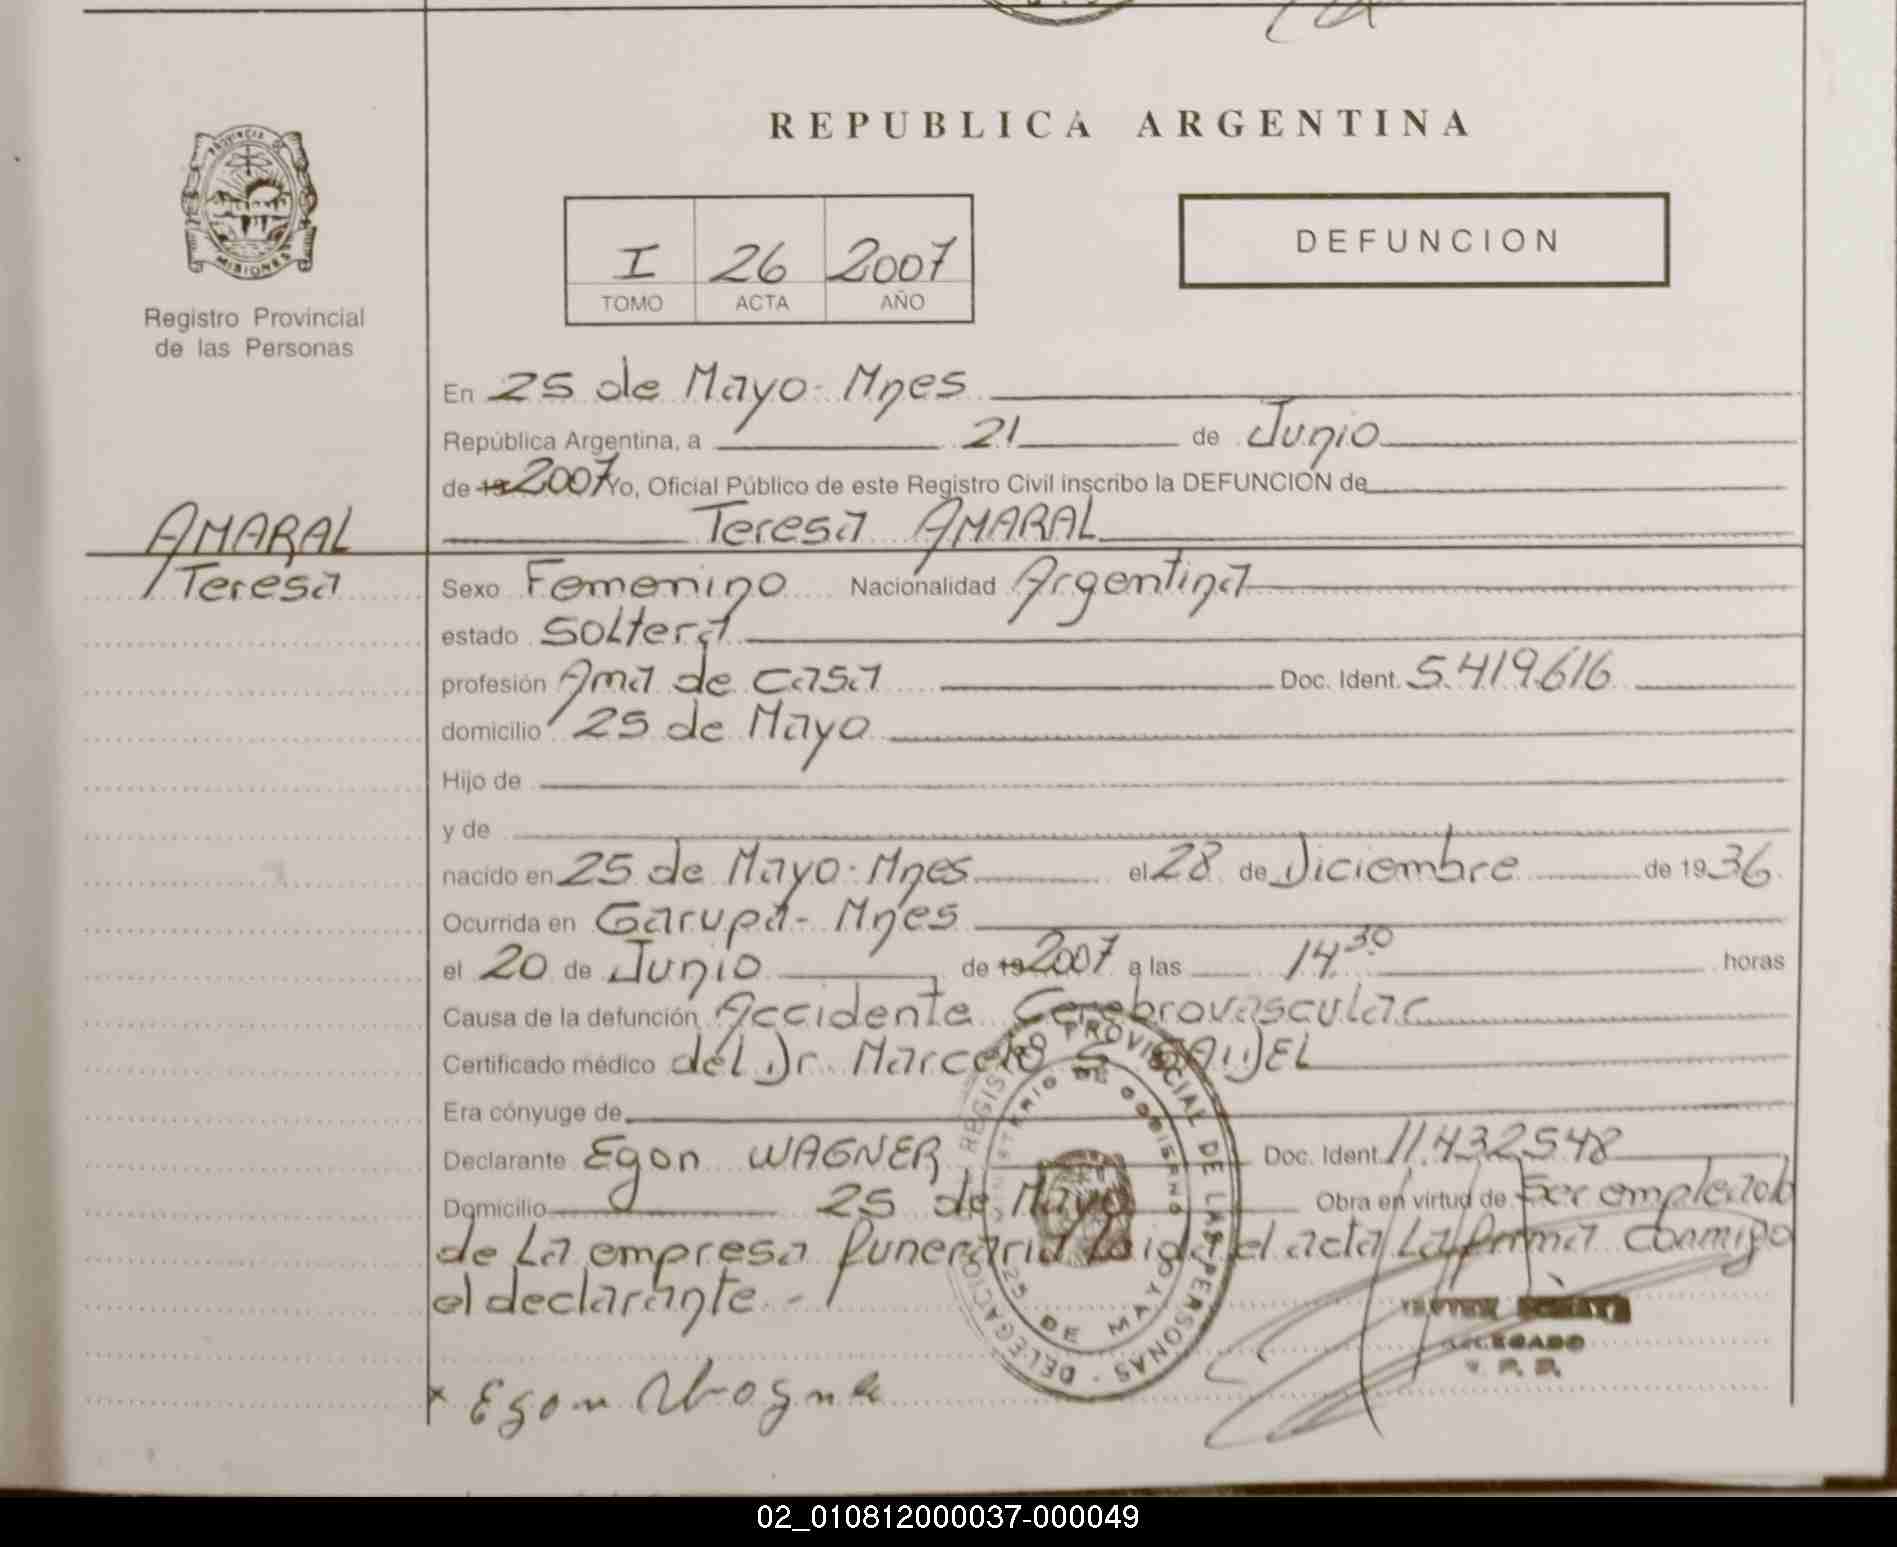 REPUBLICA ARGENTINA
PROVINCIA DE
MISIONES
Registro Provincial
de las Personas
I 26 2007
TOMO ACTA AÑO
DEFUNCION
En 25 de Mayo - Mnes
República Argentina, a 21 de Junio
de 19 2007 Yo, Oficial Público de este Registro Civil inscribo la DEFUNCION de
Teresa AMARAL
AMARAL
Teresa
Sexo Femenino Nacionalidad Argentina
estado Soltera
profesión Ama de casa Doc. Ident. 5.419.616
domicilio 25 de Mayo
Hijo de
y de
nacido en 25 de Mayo - Mnes el 28 de Diciembre de 1936
Ocurrida en Garupa - Mnes
el 20 de Junio de 19 2007 a las 14 30 horas
Causa de la defunción Accidente Cerebrovascular
Certificado médico del Dr. Marcelo
Era cónyuge de
Declarante Egon WAGNER Doc. Ident. 11.432548
Domicilio 25 de Mayo Obra en virtud de Ser empleado
de La empresa funeraria Leida el acta La firma conmigo
el declarante. -
REGISTRO PROVINCIAL DE LAS PERSONAS - DELEGACION
MINISTERIO DE GOBIERNO
25 DE MAYO
DELEGADO
x Egon Wagner
02_010812000037-000049